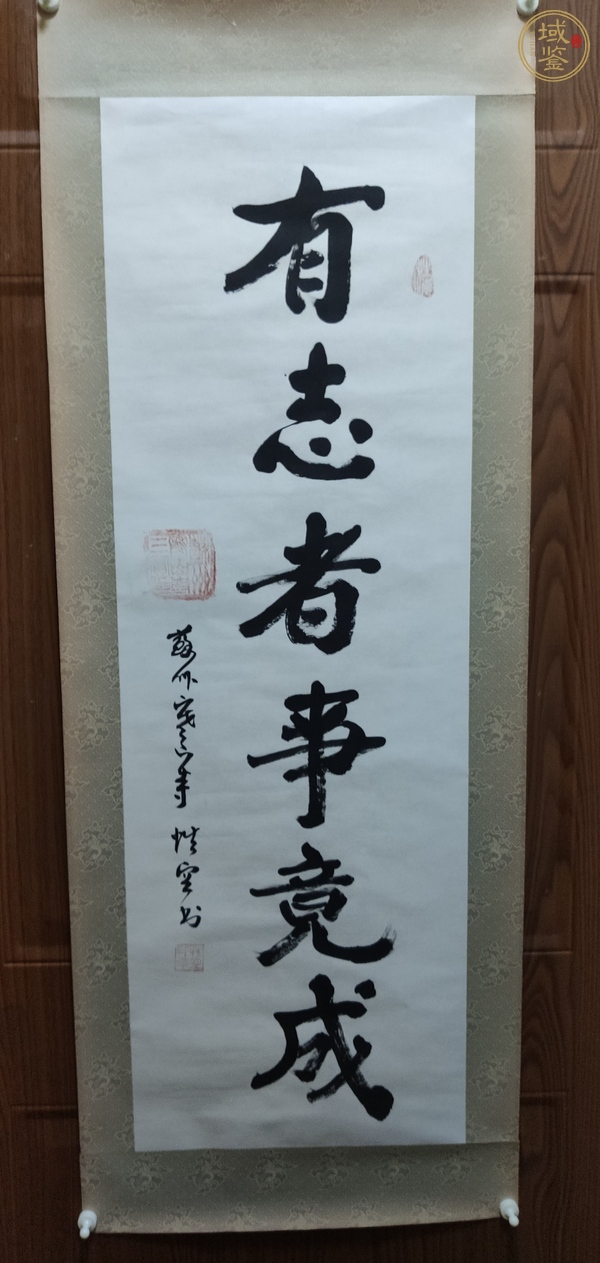 有志者事竟成
蘇州寒山寺 性空书
域鉴